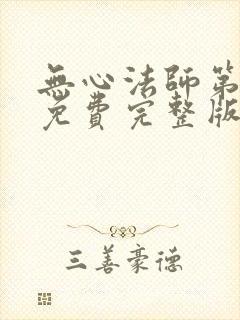 無心法師第
免費完整版
三善豪德